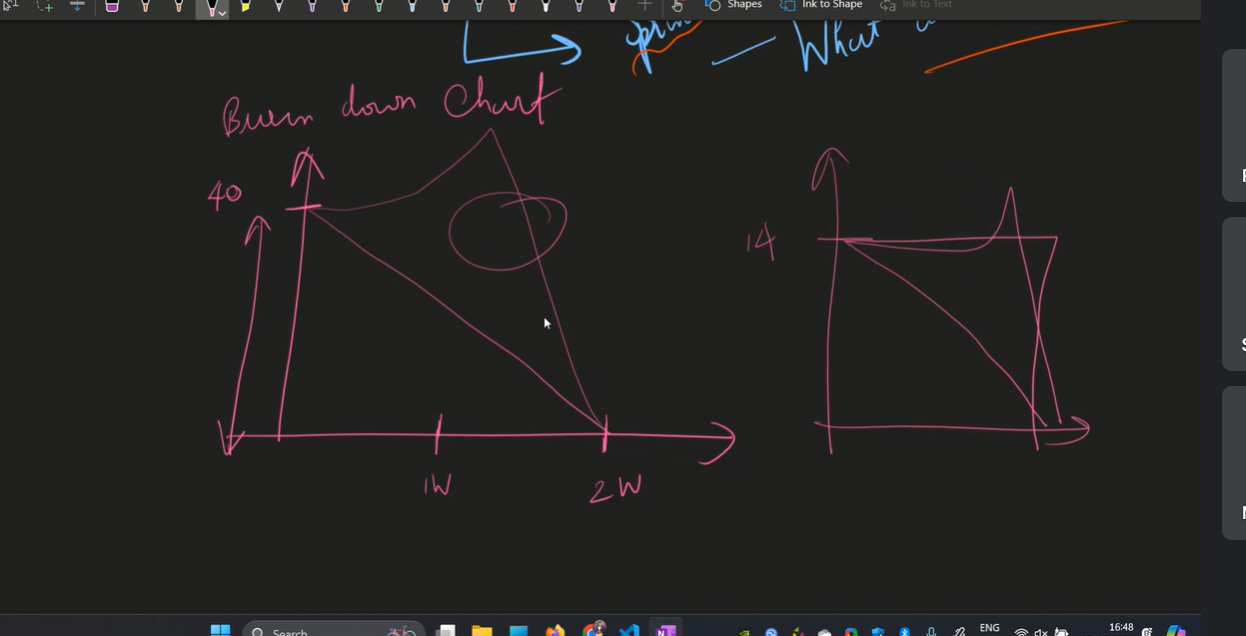 Shapes
Ink to Shape
Ink to Text
What
Burn down Chart
40
14
1W
2W
Search
ENG
16:48